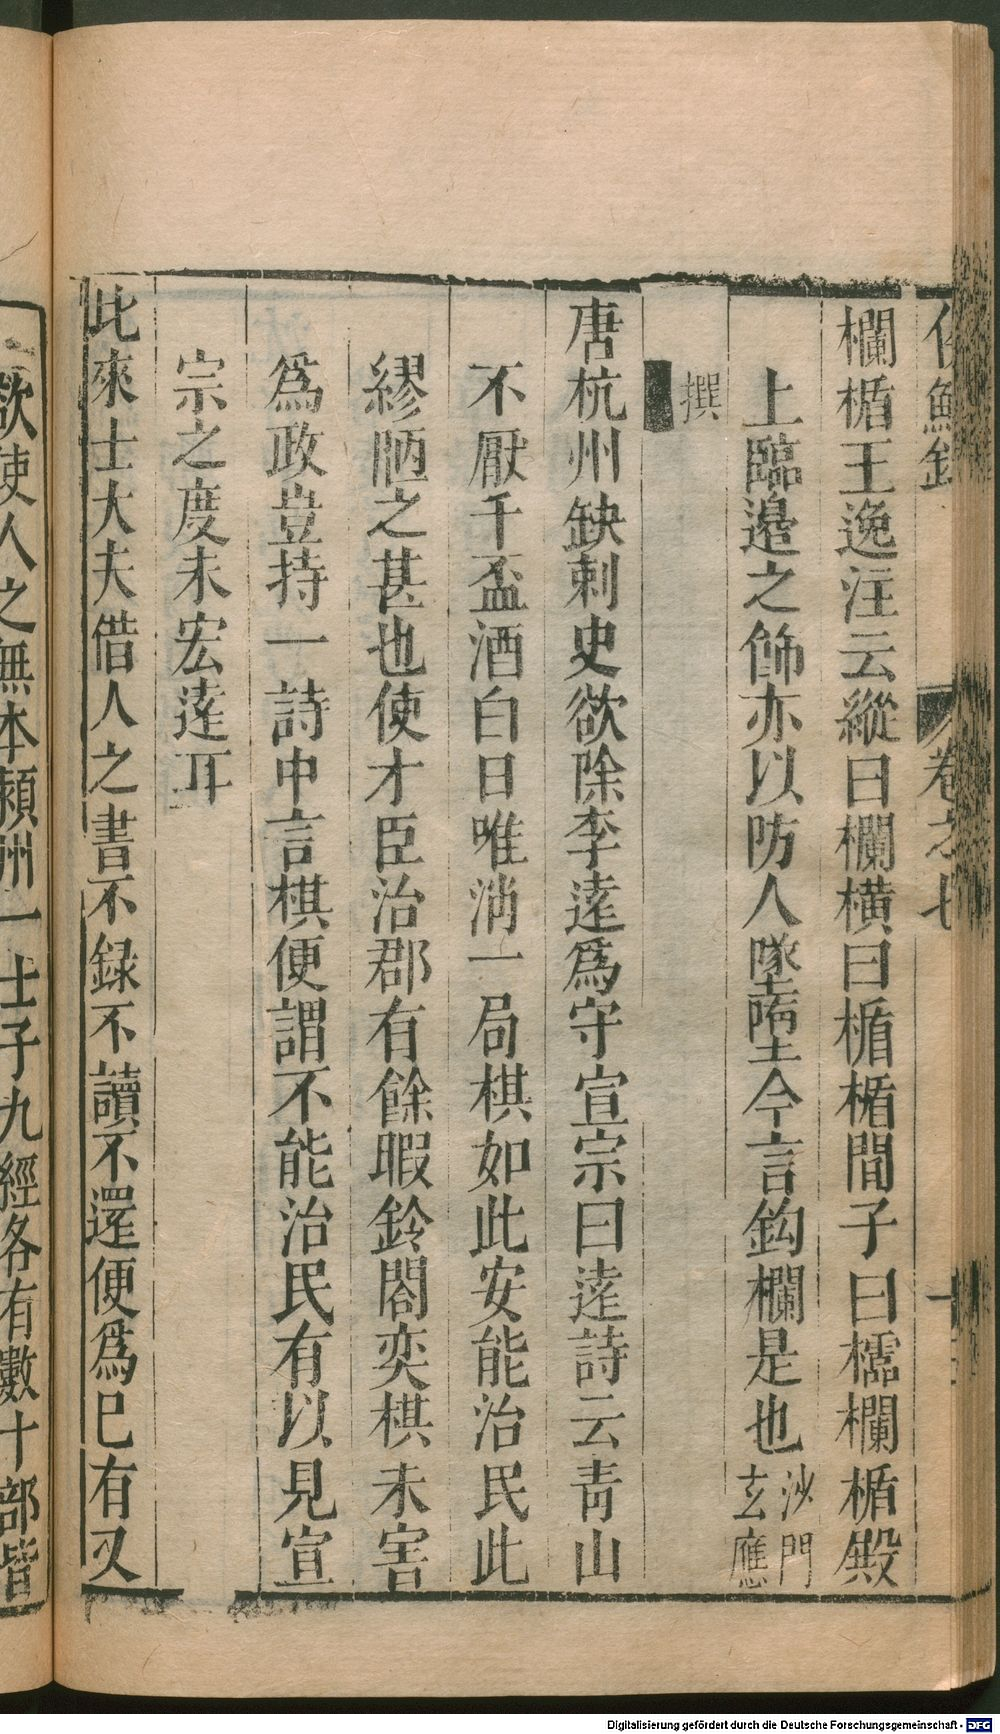 侯鯖錄 卷之七
欄楯王逸注云縱曰欄橫曰楯楯間子曰櫺欄楯殿
上臨邉之飾亦以防人墜墮今言鈎欄是也沙門
玄應
撰
唐杭州缺刺史欲除李逺爲守宣宗曰逺詩云青山
不厭千盃酒白日唯消一局棋如此安能治民此
繆陋之甚也使才臣治郡有餘暇鈴閤奕棋未害
爲政豈持一詩中言棋便謂不能治民有以見宣
宗之度未宏逺耳
此來士大夫借人之書不録不讀不還便爲已有又
欲使人之無本潁州一士子九經各有數十部皆
Digitalisierung gefördert durch die Deutsche Forschungsgemeinschaft - DFG